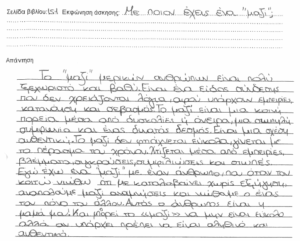 Σελίδα βιβλίου: 151 Εκφώνηση άσκησης: Με ποιον έχεις ένα "μαζί";
Απάντηση
Το "μαζί" μερικών ανθρώπων είναι πολύ
ξεχωριστό και βαθύ. Είναι ένα είδος σύνδεσης
που δεν χρειάζονται λόγια, αφού υπάρχουν εμπειρίες,
κατανόηση και σεβασμός. Το μαζί είναι μια κοινή
πορεία μέσα από δυσκολίες ή όνειρα, μια σιωπηλή
συμφωνία και ένας δυνατός δεσμός. Είναι μια σχέση
αυθεντική. Το μαζί δεν φτιάχνεται εύκολα, χτίζεται με
το πέρασμα του χρόνου. Χτίζεται μέσα από εμπειρίες,
βλέμματα, συγκρούσεις, συμφιλιώσεις και σιωπές.
Εγώ έχω ένα "μαζί" με έναν άνθρωπο, που όταν τον
κοιτώ νιώθω ότι με καταλαβαίνει χωρίς εξηγήσεις,
μαζί αναμνήσεις και νιώθαμε ο ένας
τον πόνο του άλλου. Αυτός ο άνθρωπος είναι η
μαμά μου. Και μπορεί το «μαζί» να μην είναι εύκολο
αλλά αν υπάρχει πρέπει να είναι αληθινό και
αυθεντικό.